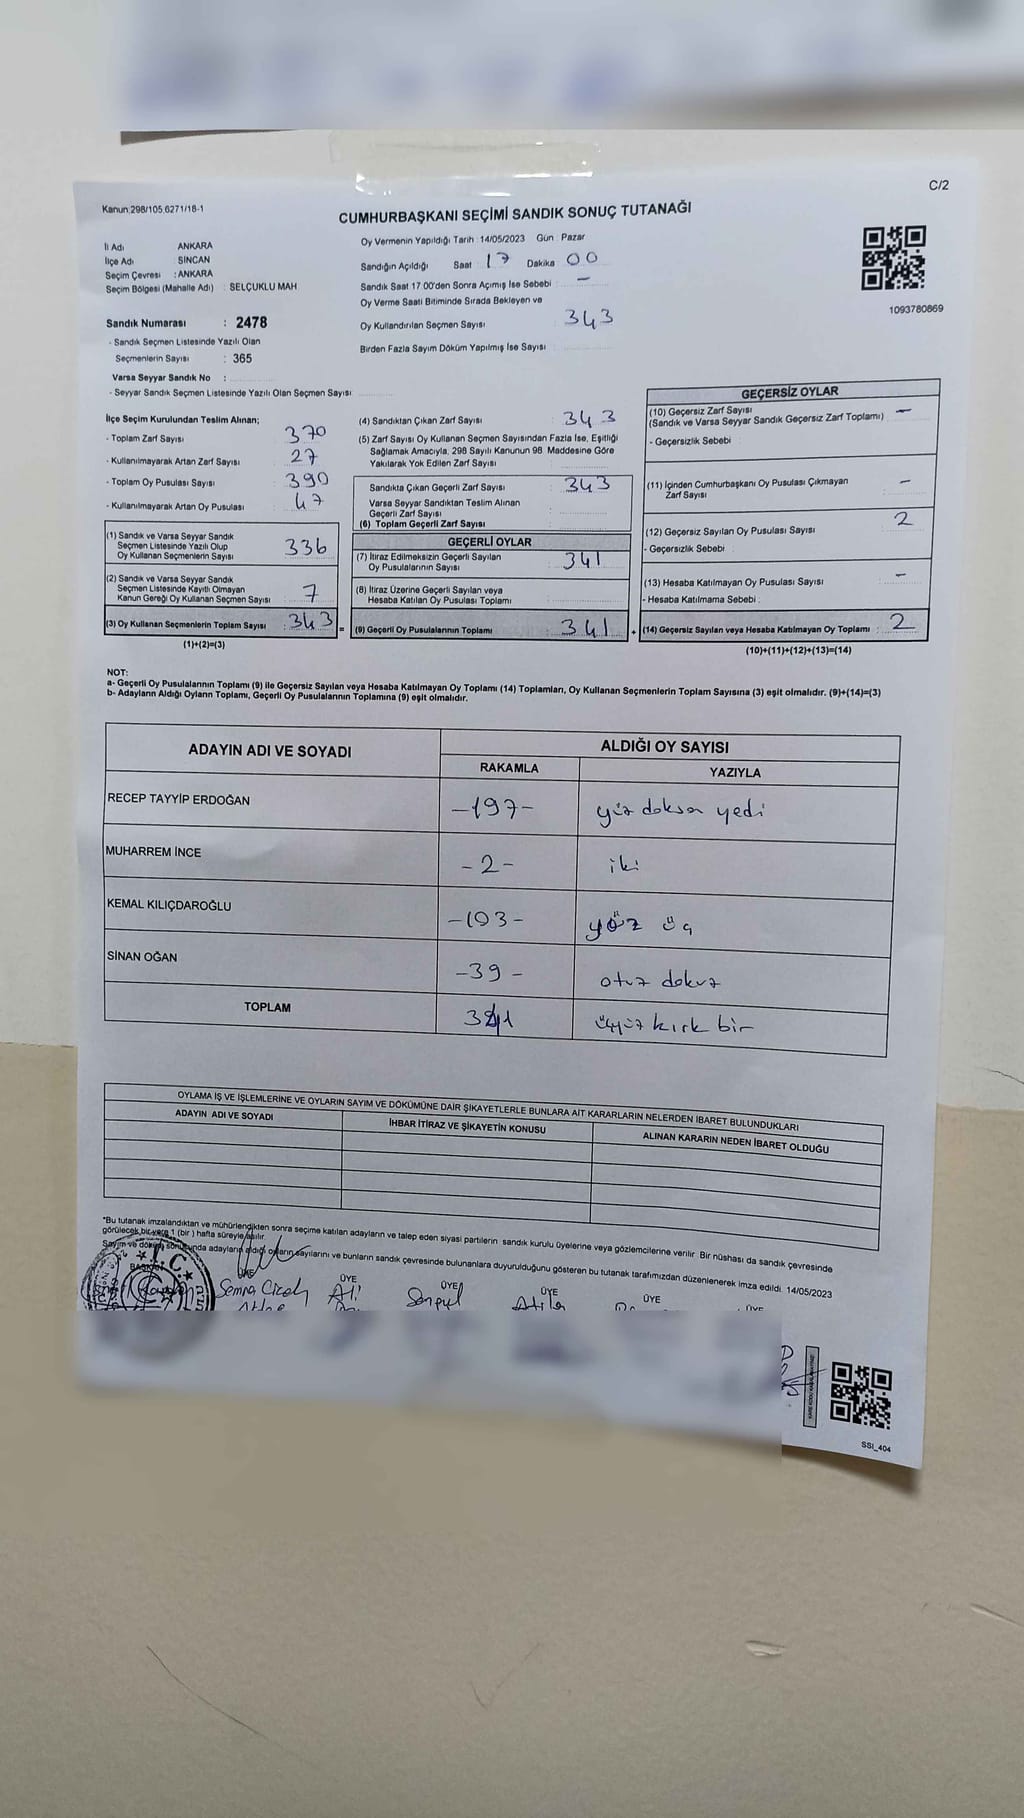 C/2
Kanun:298/105,6271/18-1
CUMHURBAŞKANI SEÇİMİ SANDIK SONUÇ TUTANAĞI
İl Adı ANKARA
İlçe Adı SİNCAN
Seçim Çevresi : ANKARA
Seçim Bölgesi (Mahalle Adı) : SELÇUKLU MAH
Sandık Numarası : 2478
- Sandık Seçmen Listesinde Yazılı Olan
Seçmenlerin Sayısı : 365
Varsa Seyyar Sandık No :
- Seyyar Sandık Seçmen Listesinde Yazılı Olan Seçmen Sayısı
Oy Vermenin Yapıldığı Tarih : 14/05/2023 Gün : Pazar
Sandığın Açıldığı Saat 17 Dakika 00
Sandık Saat 17.00'den Sonra Açımış İse Sebebi : -
Oy Verme Saati Bitiminde Sırada Bekleyen ve
Oy Kullandırılan Seçmen Sayısı 343
Birden Fazla Sayım Döküm Yapılmış İse Sayısı
1093780869
İlçe Seçim Kurulundan Teslim Alınan;
- Toplam Zarf Sayısı 370
- Kullanılmayarak Artan Zarf Sayısı 27
- Toplam Oy Pusulası Sayısı 390
- Kullanılmayarak Artan Oy Pusulası 47
(1) Sandık ve Varsa Seyyar Sandık
Seçmen Listesinde Yazılı Olup
Oy Kullanan Seçmenlerin Sayısı 336
(2) Sandık ve Varsa Seyyar Sandık
Seçmen Listesinde Kayıtlı Olmayan
Kanun Gereği Oy Kullanan Seçmen Sayısı 7
(3) Oy Kullanan Seçmenlerin Toplam Sayısı : 343 =
(1)+(2)=(3)
(4) Sandıktan Çıkan Zarf Sayısı 343
(5) Zarf Sayısı Oy Kullanan Seçmen Sayısından Fazla İse, Eşitliği
Sağlamak Amacıyla, 298 Sayılı Kanunun 98. Maddesine Göre
Yakılarak Yok Edilen Zarf Sayısı
Sandıkta Çıkan Geçerli Zarf Sayısı 343
Varsa Seyyar Sandıktan Teslim Alınan
Geçerli Zarf Sayısı
(6) Toplam Geçerli Zarf Sayısı
GEÇERLİ OYLAR
(7) İtiraz Edilmeksizin Geçerli Sayılan
Oy Pusulalarının Sayısı 341
(8) İtiraz Üzerine Geçerli Sayılan veya
Hesaba Katılan Oy Pusulası Toplamı
(9) Geçerli Oy Pusulalarının Toplamı 341 +
GEÇERSİZ OYLAR
(10) Geçersiz Zarf Sayısı -
(Sandık ve Varsa Seyyar Sandık Geçersiz Zarf Toplamı)
- Geçersizlik Sebebi
(11) İçinden Cumhurbaşkanı Oy Pusulası Çıkmayan
Zarf Sayısı -
(12) Geçersiz Sayılan Oy Pusulası Sayısı 2
- Geçersizlik Sebebi :
(13) Hesaba Katılmayan Oy Pusulası Sayısı -
- Hesaba Katılmama Sebebi :
(14) Geçersiz Sayılan veya Hesaba Katılmayan Oy Toplamı : 2
(10)+(11)+(12)+(13)=(14)
NOT:
a- Geçerli Oy Pusulalarının Toplamı (9) ile Geçersiz Sayılan veya Hesaba Katılmayan Oy Toplamı (14) Toplamları, Oy Kullanan Seçmenlerin Toplam Sayısına (3) eşit olmalıdır. (9)+(14)=(3)
b- Adayların Aldığı Oyların Toplamı, Geçerli Oy Pusulalarının Toplamına (9) eşit olmalıdır.
ADAYIN ADI VE SOYADI ALDIĞI OY SAYISI
RAKAMLA YAZIYLA
RECEP TAYYİP ERDOĞAN -197- yüz doksan yedi
MUHARREM İNCE -2- iki
KEMAL KILIÇDAROĞLU -103- yüz üç
SİNAN OĞAN -39- otuz dokuz
TOPLAM 341 üçyüz kırk bir
OYLAMA İŞ VE İŞLEMLERİNE VE OYLARIN SAYIM VE DÖKÜMÜNE DAİR ŞİKAYETLERLE BUNLARA AİT KARARLARIN NELERDEN İBARET BULUNDUKLARI
ADAYIN ADI VE SOYADI İHBAR İTİRAZ VE ŞİKAYETİN KONUSU ALINAN KARARIN NEDEN İBARET OLDUĞU
*Bu tutanak imzalandıktan ve mühürlendikten sonra seçime katılan adayların ve talep eden siyasi partilerin sandık kurulu üyelerine veya gözlemcilerine verilir. Bir nüshası da sandık çevresinde
görülecek bir yere 1 (bir) hafta süreyle asılır
Sayım ve döküm sonucunda adayların aldığı oyların sayılarını ve bunların sandık çevresinde bulunanlara duyurulduğunu gösteren bu tutanak tarafımızdan düzenlenerek imza edildi. 14/05/2023
BAŞKAN ÜYE ÜYE ÜYE ÜYE ÜYE ÜYE
Semra Ali Atila
T.C.
SSI_404